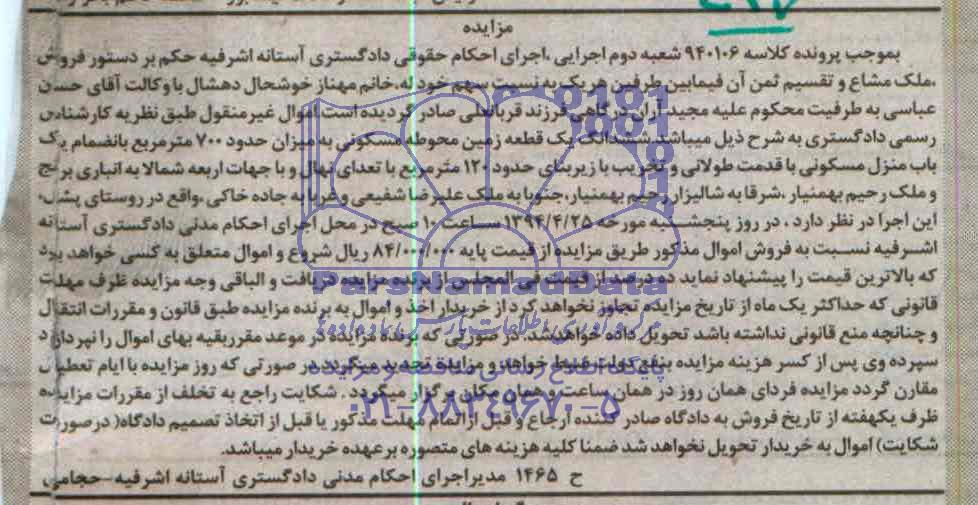 مزایده
بموجب پرونده کلاسه ۹۴۰۱۰۶ شعبه دوم اجرایی ،اجرای احکام حقوقی دادگستری آستانه اشرفیه حکم بر دستور فروش
،ملک مشاع و تقسیم ثمن آن فیمابین طرفین هریک به نسبت سهم خود له،خانم مهناز خوشحال دهشال با وکالت آقای حسن
عباسی به طرفیت محکوم علیه مجید آران درگاهی فرزند قربانعلی صادر گردیده است.اموال غیرمنقول طبق نظریه کارشناس
رسمی دادگستری به شرح ذیل میباشد.ششدانگ یک قطعه زمین محوطه مسکونی به میزان حدود ۷۰۰ مترمربع بانضمام یک
باب منزل مسکونی با قدمت طولانی و تخریب با زیربنای حدود ۱۲۰ مترمربع با تعدای نهال و با جهات اربعه شمالا به انباری برنج
و ملک رحیم بهمنیار ،شرقا به شالیزار رحیم بهمنیار،جنوبا به ملک علیرضا شفیعی و غربا به جاده خاکی ،واقع در روستای پشل،
این اجرا در نظر دارد ، در روز پنجشنبه مورخه ۱۳۹۴/۴/۲۵ ساعت ۱۰ صبح در محل اجرای احکام مدنی دادگستری آستانه
اشرفیه نسبت به فروش اموال مذکور طریق مزایده از قیمت پایه ۸۴/۰۰۰/۰۰۰ ریال شروع و اموال متعلق به کسی خواهد بود
که بالاترین قیمت را پیشنهاد نماید ده درصد از قیمت فی المجلس از برنده مزایده دریافت و الباقی وجه مزایده ظرف مهلت
قانونی که حداکثر یک ماه از تاریخ مزایده تجاوز نخواهد کرد از خریدار اخذ و اموال به برنده مزایده طبق قانون و مقررات انتقال
و چنانچه منع قانونی نداشته باشد تحویل داده خواهد شد. در صورتی که برنده مزایده در موعد مقرر بقیه بهای اموال را نپردازد
سپرده وی پس از کسر هزینه مزایده بنفع دولت ضبط خواهد و مزایده تجدید میگردد در صورتی که روز مزایده با ایام تعطیل
مقارن گردد مزایده فردای همان روز در همان ساعت و همان مکان برگزار میگردد . شکایت راجع به تخلف از مقررات مزایده
ظرف یکهفته از تاریخ فروش به دادگاه صادر کننده ارجاع و قبل از اتمام مهلت مذکور یا قبل از اتخاذ تصمیم دادگاه( در صورت
شکایت) اموال به خریدار تحویل نخواهد شد ضمنا کلیه هزینه های متصوره بر عهده خریدار میباشد.
ح ۱۴۶۵ مدیر اجرای احکام مدنی دادگستری آستانه اشرفیه-حجامی
ParsNamadData
۰۲۱-۸۸۳۴۹۶۷۰-۵